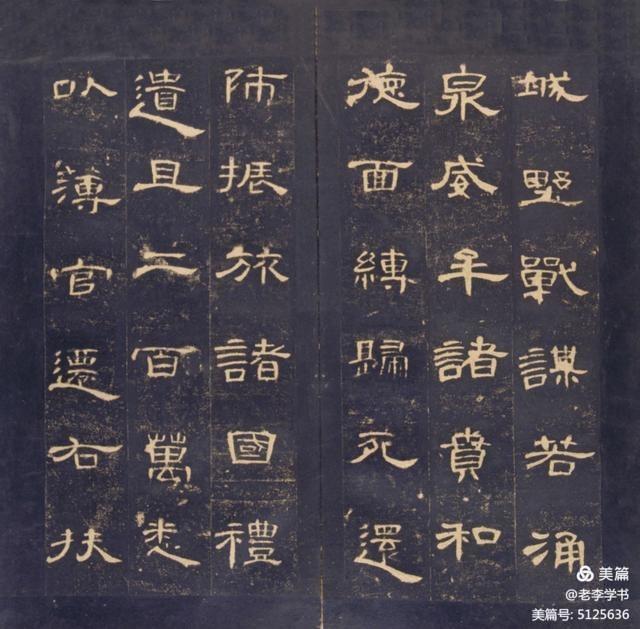 城野戰謀若涌
泉威牟諸賁和
德面縛歸死還
師振旅諸國禮
遺且二百萬悉
以薄官遷右扶
美篇
@老李学书
美篇号: 5125636